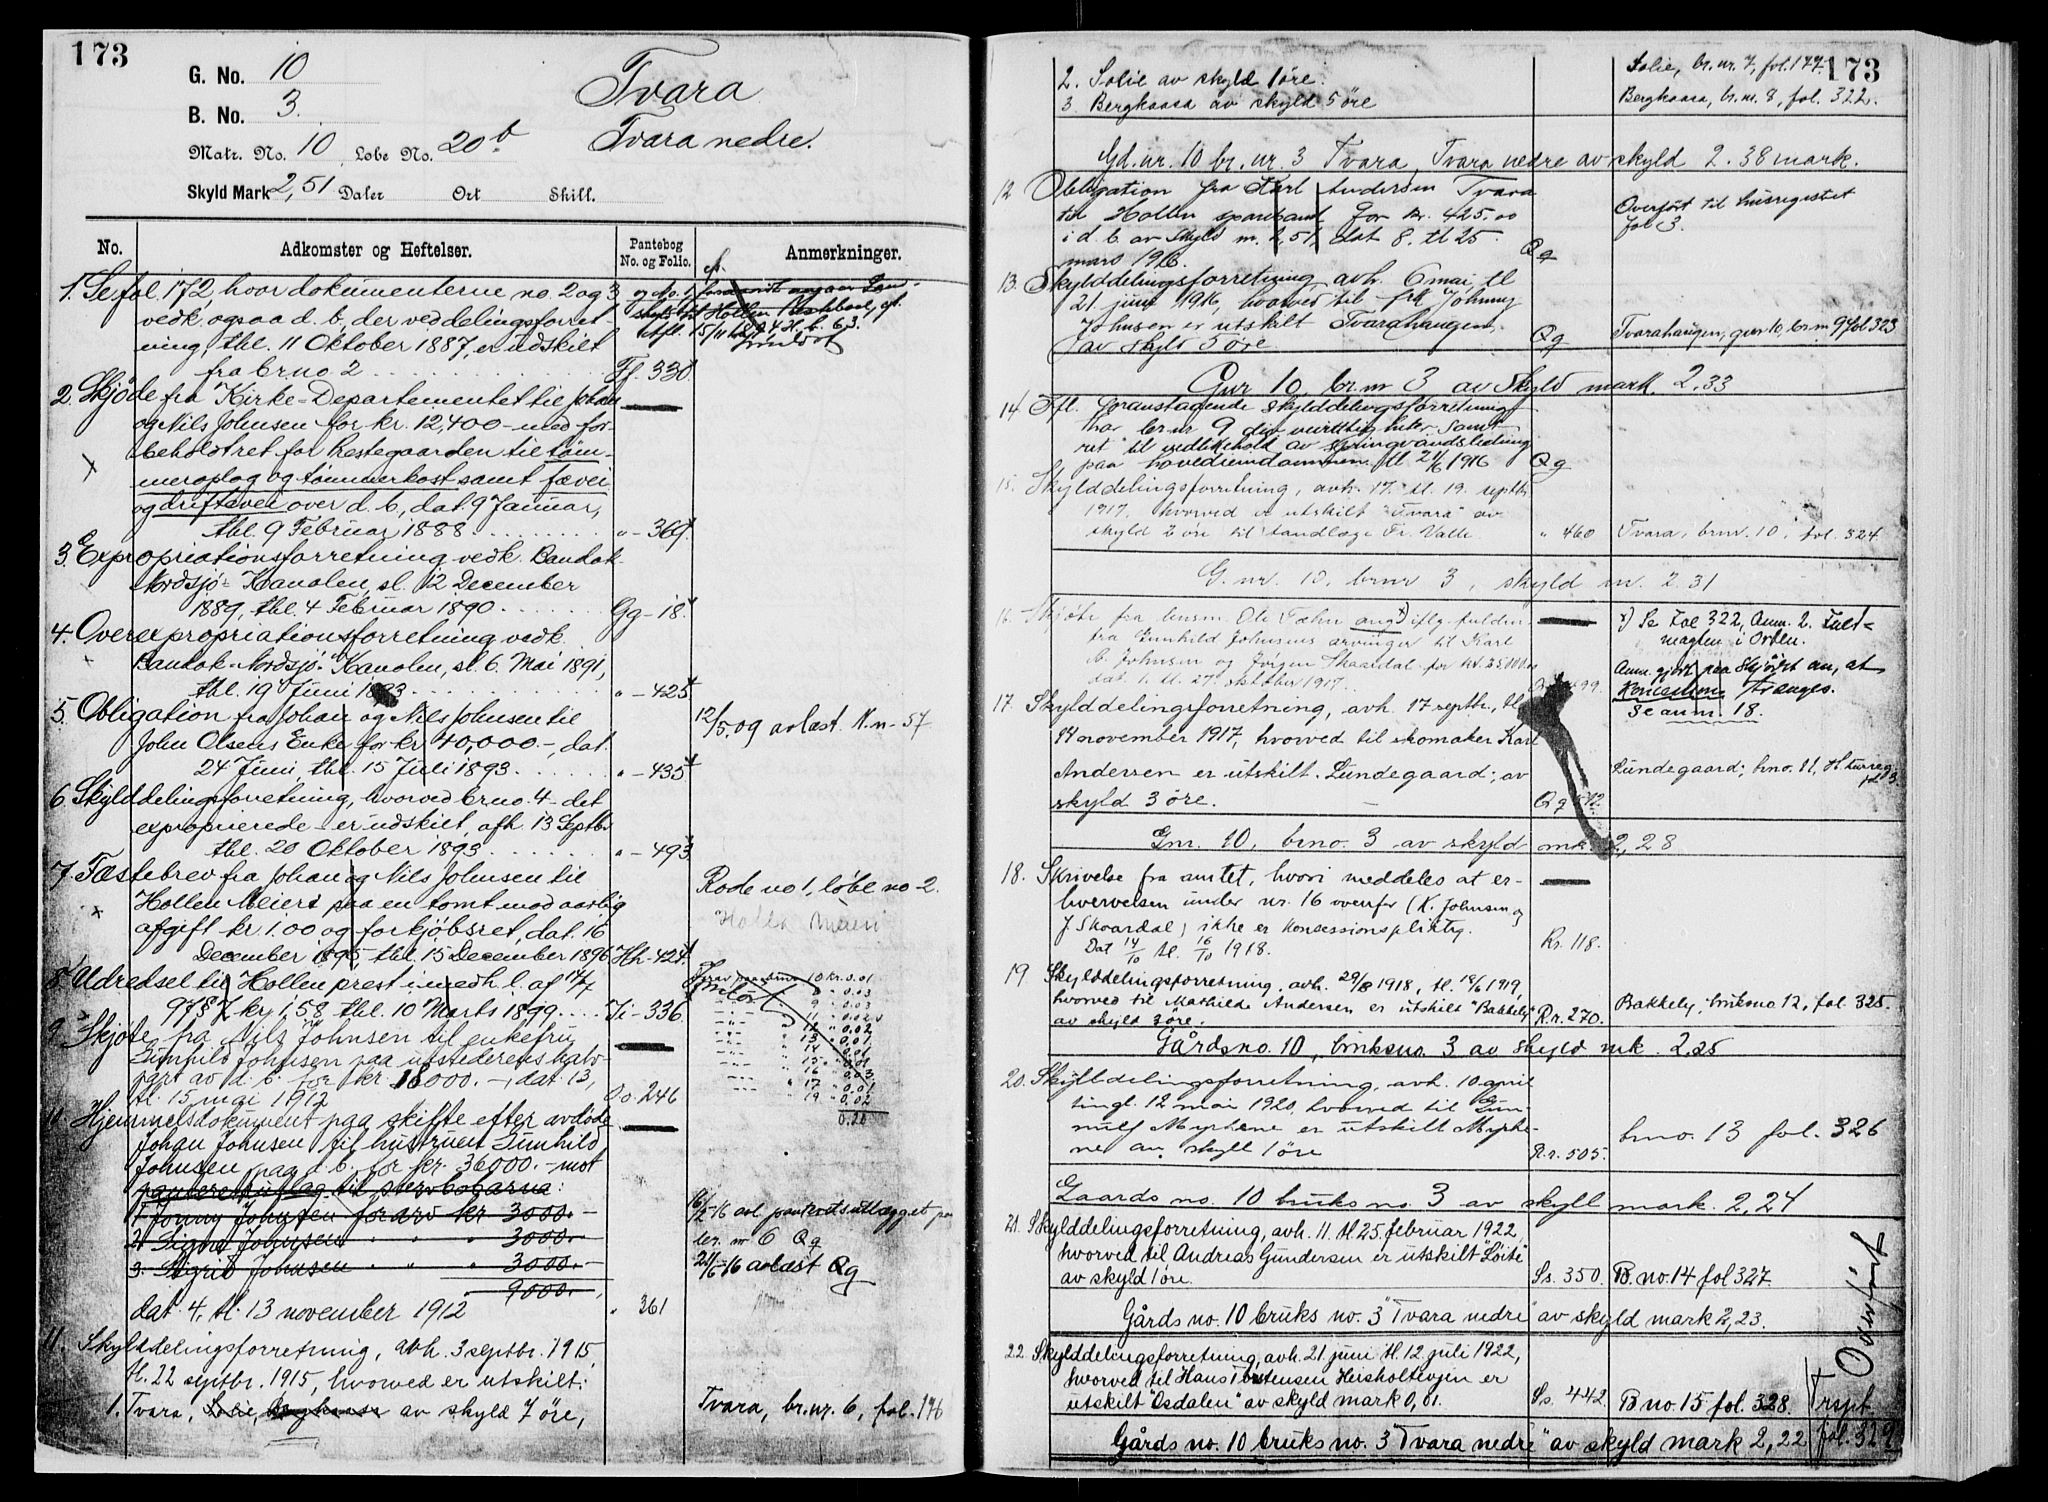 173
G. No. 10
B. No. 3.
Matr. No. 10, Løbe No. 20 b
Skyld Mark 2,51 Daler Ort Skill.
Tvara
Tvara nedre.
No. Adkomster og Heftelser. Pantebog No. og Folio. Anmerkninger.
1. Se fol. 172, hvor dokumenterne no. 2 og 3
vedk. ogsaa d. b., der ved delingsforret-
ning, thl. 11 Oktober 1887, er udskilt
fra brno 2 Ff. 330
2. Skjøde fra Kirke-Departementet til Johan
og Nils Johnsen for kr. 12,400 - med for-
beholdt ret for Prestegaarden til tøm-
meroplag og tømmerkost samt fævei
og driftsvei over d. b., dat. 9 Januar,
thl. 9 Februar 1888. " - 369
3. Expropriationsforretning vedk. Bandak
Nordsjø-Kanalen, sl. 12 December
1889, thl. 4 Februar 1890 Gg - 18
4. Overexpropriationsforretning vedk.
Bandak-Nordsjø-Kanalen, sl. 6. Mai 1891,
thl. 19 Juni 1893 " - 425
5. Obligation fra Johan og Nils Johnsen til
John Olsens Enke for kr. 40,000.-, dat.
24 Juni, thl. 15 Juli 1893. " - 435
12/5.09 avlæst. N.n - 57
6. Skylddelingsforretning, hvorved brno. 4 - det
exproprierede - er udskilt, afh. 13 Septbr
thl. 20 Oktober 1893. " - 493
7. Fæstebrev fra Johan og Nils Johnsen til
Hollen Meieri paa en tomt mod aarlig
afgift kr. 1.00 og forkjøbsret, dat. 16
December 1895, thl. 15 December 1896 Hh - 424
Rode no 1, løbe no 2.
Holla Meieri
8. Udredsel til Hollen prest i medh. l. af 14/7
97 § 7 kr. 1,58 thl. 10 Marts 1899. Ii - 336
9. Skjøte fra Nils Johnsen til enkefru
Gunhild Johnsen paa utstederens halv-
part av d. b. for kr. 18000.-, dat. 13,
tl. 15 mai 1912 Oo. 246
10. Hjemmelsdokument paa skifte efter avdøde
Johan Johnsen til hustruen Gunhild
Johnsen paa d. b. for kr. 36000.- mot
panteret utlag til stervbobarna:
1. Jonny Johnsen for arv kr 3000.-
2. Signe Johnsen " " " 3000.-
3. Sigrid Johnsen " " " 3000.-
9000.-
dat. 4, tl. 13 november 1912 " 361
6/2-16 avl. panteretsutlægget paa
br. nr 6 Qg
21/6-16 avlæst Qg
11. Skylddelingsforretning, avh. 3 septbr. 1915,
tl. 22 septbr. 1915, hvorved er utskilt:
1. Tvara, av skyld 7 øre, Tvara, br. nr. 6, fol. 176
173
2. Solie av skyld 1 øre. Solie, br. nr. 7, fol. 177
3. Bergkaasa av skyld 5 øre Bergkaasa, br. nr. 8, fol. 322.
Gd. nr. 10 br. nr. 3 Tvara, Tvara nedre av skyld 2.38 mark.
12 Obligation fra Karl Andersen Tvara
til Hollen sparebank for kr. 425.00
i d. b. av skyld m. 2,51, dat 8. tl 25.
mars 1916. Qg
Overført til husregistret
fol 3.
13. Skylddelingsforretning avh. 6 mai, tl.
21. juni 1916, hvorved til frk Johnny
Johnsen er utskilt Tvarahaugen,
av skyld 5 øre. Qg Tvarahaugen, gnr 10, br. nr 9 fol 323
Gnr 10 br. nr 3 av skyld mark. 2.33
14. Ifl. foranstaaende skylddelingsforretning
har br. nr 9 div. samt
ret til vedlikehold av springvandsledning
paa hovedeiendommen tl 21/6 1916 Qg
15. Skylddelingsforretning, avh. 17. tl. 19. septbr.
1917, hvorved er utskilt "Tvara" av
skyld 2 øre til tandlæge Fr. Valle " 460 Tvara, brnr. 10, fol. 324
G. nr. 10, brnr 3, skyld m. 2.31
16. Skjøte fra lensm. Ole Fæhn ang. iflg. fuldm.
fra Gunhild Johnsens arvinger til Karl
Johnsen og Jørgen Skaardal for kr. 25000.00
dat. 1. tl. 27. oktober 1917.
x) Se Fol 322, Anm. 2. Fuld-
magten i Orden.
Anm. gjort paa skjøtet om, at
Koncession trænges.
Se anm. 18.
17. Skylddelingsforretning, avh. 17 septbr., tl.
14 november 1917, hvorved til skomaker Karl
Andersen er utskilt "Lundegaard", av
skyld 3 øre. Qg 512.
Lundegaard; brno. 11, Husreg.
fol 3.
Gnr. 10, brno. 3 av skyld mk. 2,28
18. Skrivelse fra amtet, hvori meddeles at er-
hvervelsen under nr. 16 ovenfor (K. Johnsen og
J. Skaardal) ikke er konsessionspliktig.
Dat 14/10 tl. 16/10 1918. Rr. 118.
19 Skylddelingsforretning, avh. 29/8 1918, tl. 18/6 1919,
hvorved til Mathilde Andersen er utskilt "Bakkely"
av skyld 3 øre. R.r. 270. Bakkely, bruksno 12, fol. 325.
Gårdsno. 10, bruksno. 3 av skyld mk. 2.25
20. Skylddelingsforretning, avh. 10. april
tingl. 12 mai 1920, hvorved til Gun-
nulf Myrhene er utskilt Myrhe-
ne av skyll 1 øre R.r. 505. bno. 13 fol. 326
Gaards no. 10 bruks no. 3 av skyll mark. 2,24
21. Skylddelingsforretning, avh. 11. tl. 25. februar 1922,
hvorved til Andreas Gundersen er utskilt "Løite"
av skyld 1 øre. Ss. 350. B. no. 14 fol 327.
Gårds no. 10 bruks no. 3 "Tvara nedre" av skyld mark 2,23.
22. Skylddelingsforretning, avh. 21. juni tl. 12. juli 1922,
hvorved til Hans Torstensen Heisholtveien er
utskilt "Osdalen" av skyld mark 0,01. Ss. 442. B no. 15 fol. 328.
Gårds no. 10 bruks no. 3 "Tvara nedre" av skyld mark 2,22
Overført
Trspt.
fol. 329